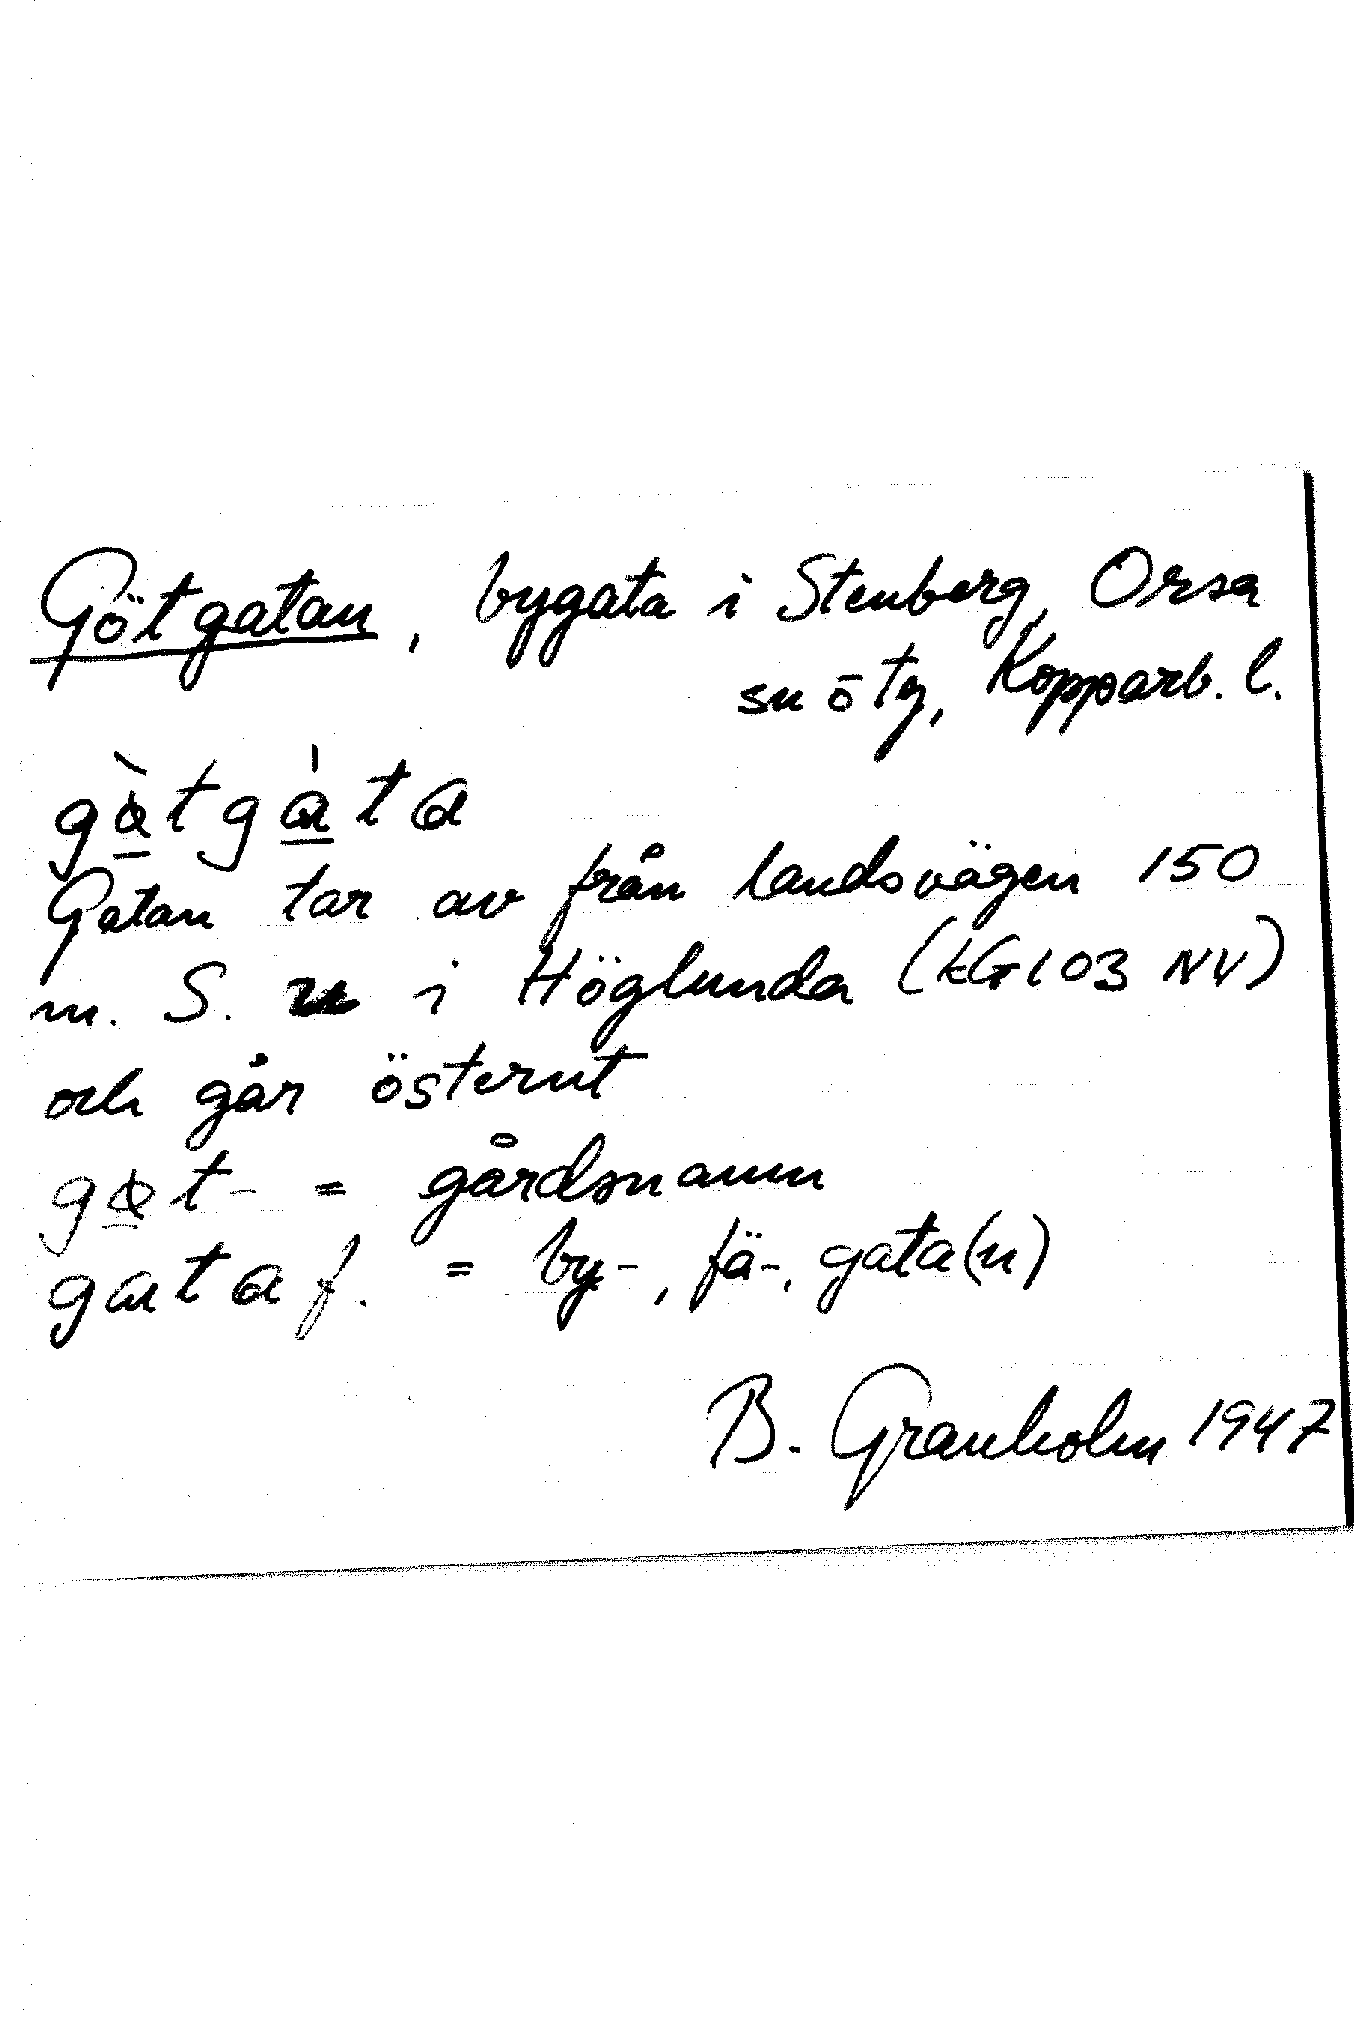 Götgatan, bygata i Stenberg, Orsa
sn ō tg, Kopparb. l.
Gatan tar av från landsvägen 150
m. S. i Höglunda (kG103 NV)
och går österut
= gårdsnamn
gata f. = by-, fä-, gata(n)
B. Granholm 1947